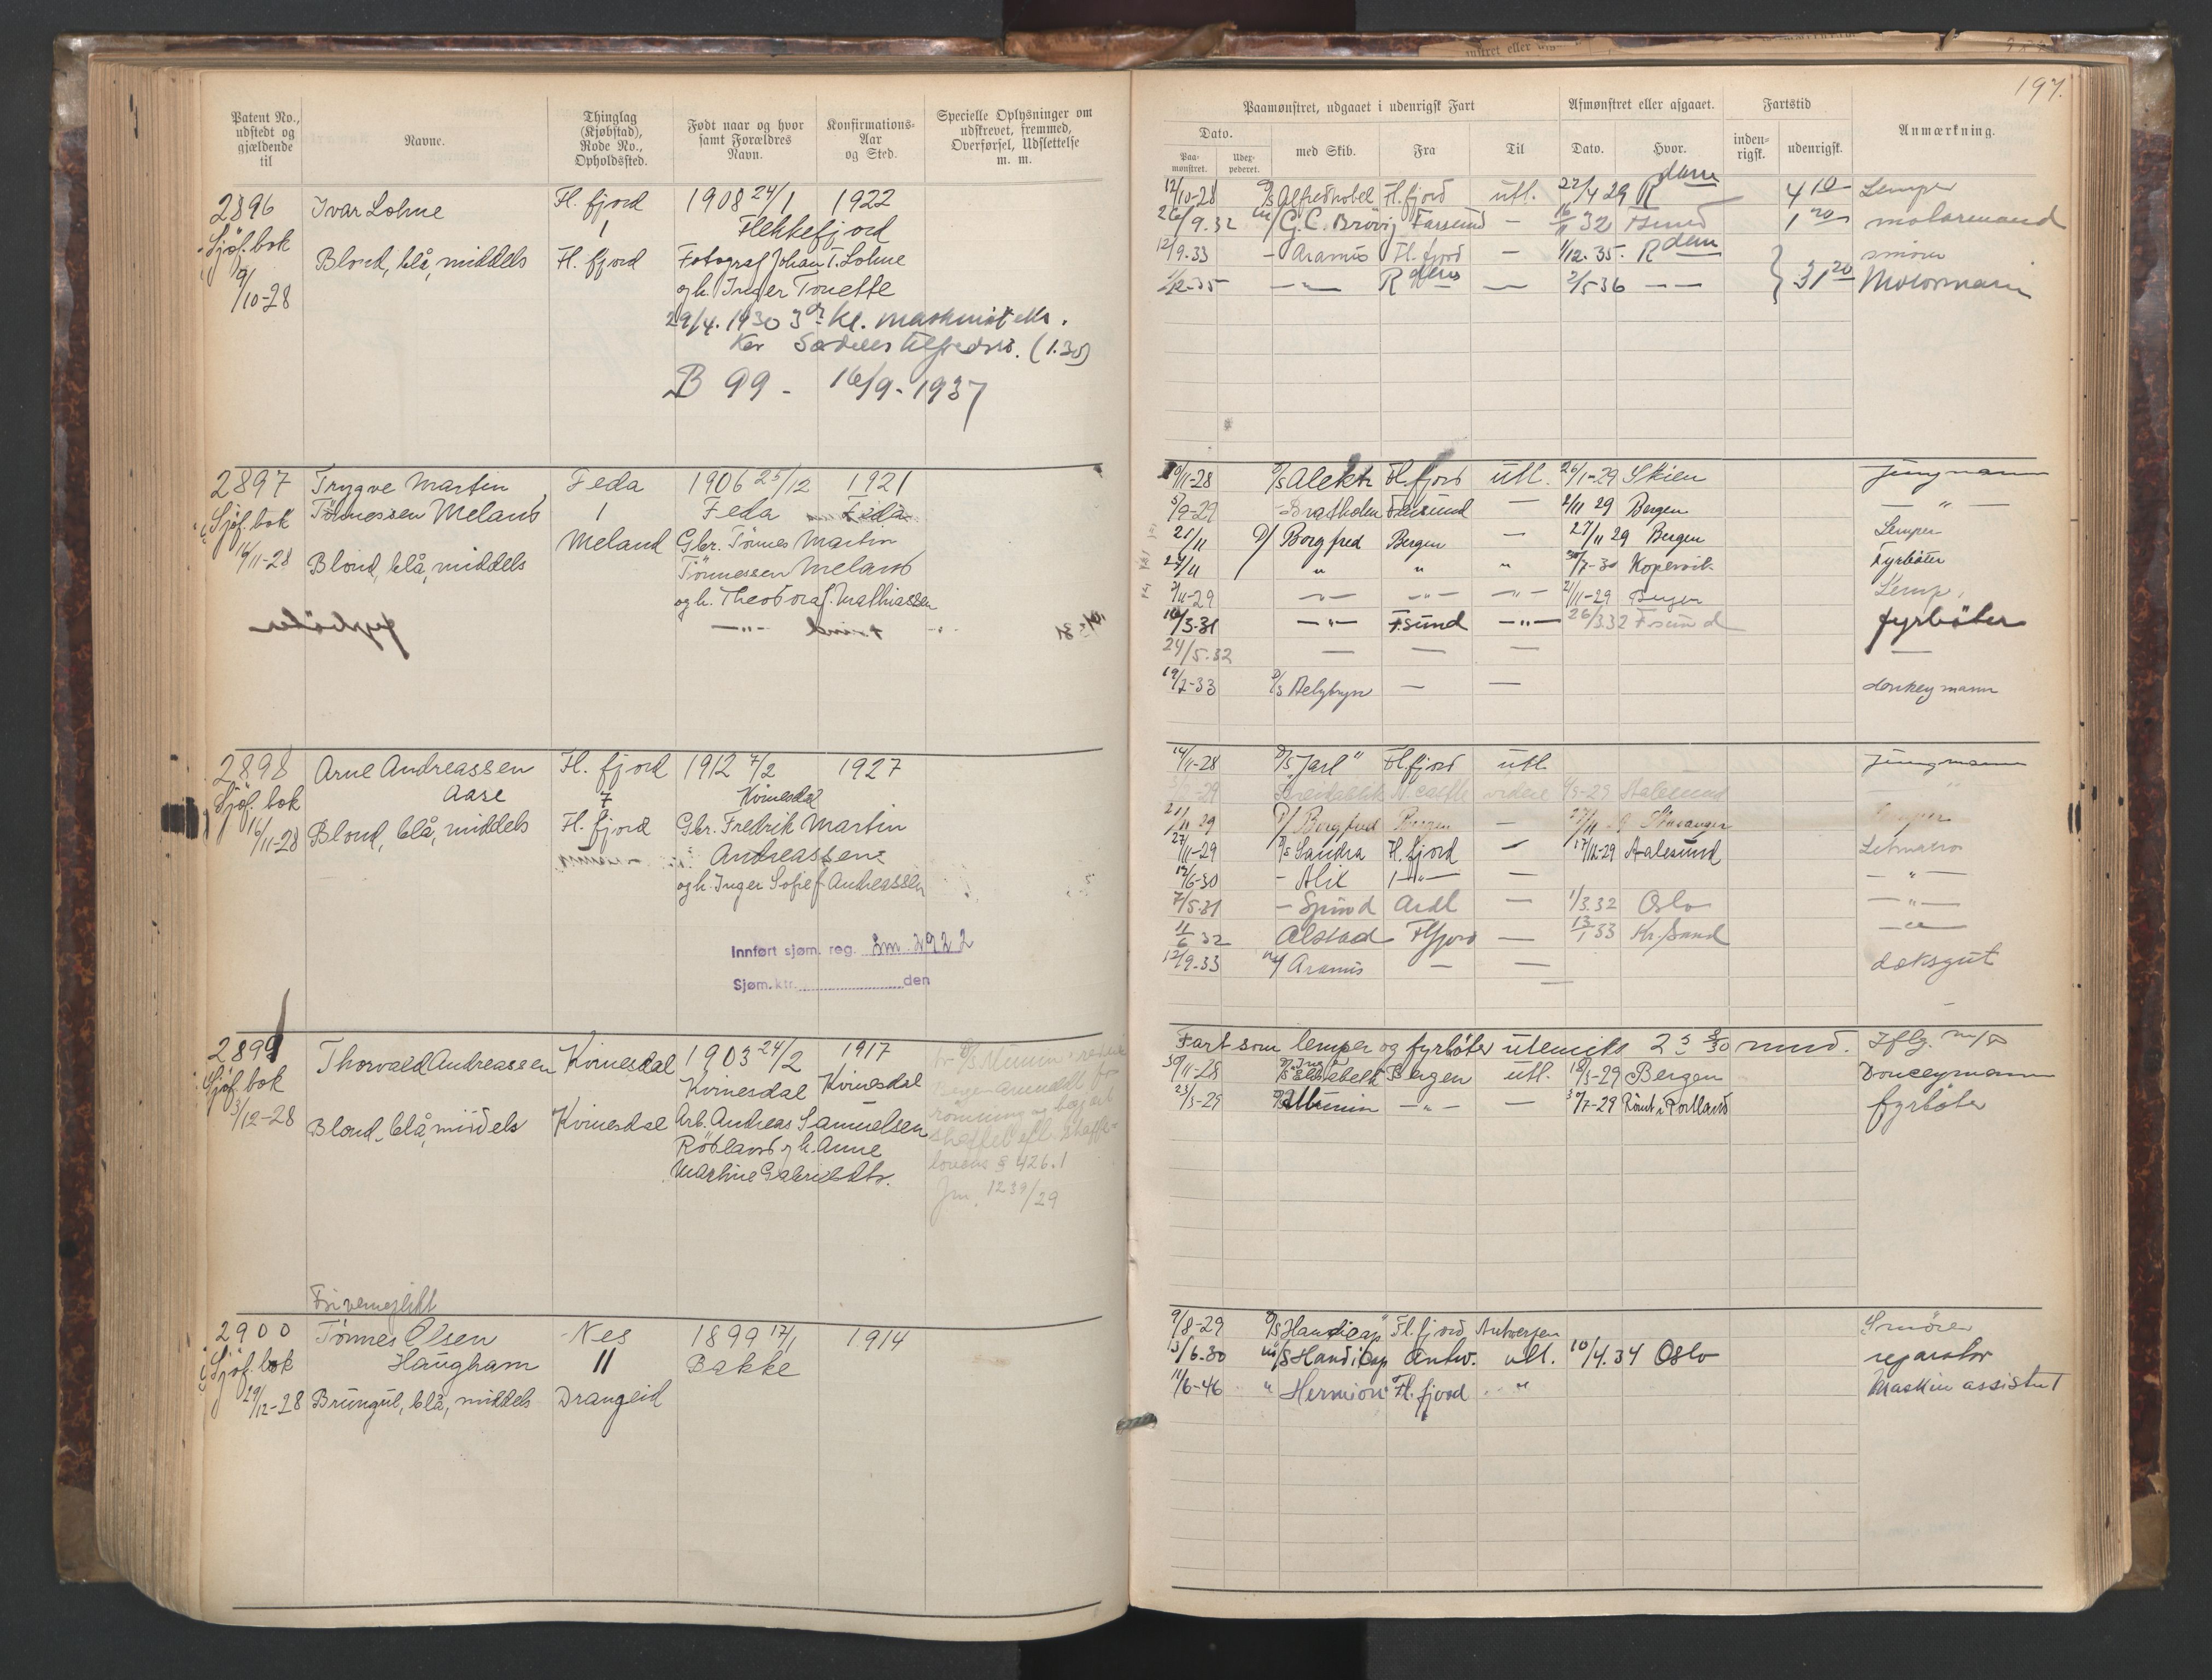 197.
Patent No., udstedt og gjældende til
Navne.
Thinglag (Kjøbstad), Rode No., Opholdssted.
Født naar og hvor samt Forældres Navn.
Konfirmations-Aar og Sted.
Specielle Oplysninger om udskrevet, fremmed, Overførsel, Udslettelse m. m.
Paamønstret, udgaaet i udenrigsk Fart
Afmønstret eller afgaaet.
Fartstid
Anmærkning.
Dato.
Paa-mønstret.
Udex-pederet.
med Skib.
Fra
Til
Dato.
Hvor.
inden-rigsk.
udenrigsk.
2896 Ivar Lohne Fl. fjord 1908 24/1 1922
Sjøf. bok 1 Flekkefjord
9/10-28 Blond, blå, middels Fl. fjord Fotograf Johan T. Lohne
og h. Inger Tonette
29/4. 1930 3die kl. maskinist
(1.30)
B 99 - 16/9-1937
12/10-28 D/S Alfrednobel Fl. fjord utl. 22/4 29 Rdam 4 Lemper
26/9.32 m/ G.C. Brøvig Farsund — 32 Fsund 1 motormand
12/9.33 - Aramis Fl. fjord — 1/12.35. Rdam smører
1/12-35 — " — Rdam — 2/5 36 — — Motormann
2897 Trygve Martin Feda 1906 25/12 1921
Sjøf. bok Tønnessen Meland 1 Feda Feda
16/11-28 Blond, blå, middels Meland Gbr. Tønnes Martin
Tønnessen Meland
og h. Theodora f. Mathiassen
/11-28 D/S Alekto Fl. fjord utl. 26/1-29 Skien Jungmann
5/9-29 - Bratholm Farsund — 2/11 29 Bergen — " —
21/11 D/ Borgfred Bergen — 27/11 29 Bergen Lemper
27/11 " " " 30/7-30 Kopervik Fyrbøter
/11-29 — " — — " — — " — 21/11-29 Bergen Lemp.
/3.31 — " — F.sund — " — 26/3.32 Fsund fyrbøter
24/5.32 — — — —
19/7-33 D/S — — donkeymann
2898 Arne Andreassen Fl. fjord 1912 7/2 1927
Sjøf. bok Aase 7 Kvinesdal
16/11-28 Blond, blå, middels Fl. fjord Gbr. Fredrik Martin
Andreassen
og h. Inger Sofie f. Andreassen
Innført sjøm. reg. 2922
Sjøm.ktr. den
14/11-28 D/S "Jarl" Fl. fjord utl. Jungmann
-29 videre -29 Aalesund "
21/11 29 D/ Borgfred Bergen — 27/11 Stavanger Lemper
27/11-29 D/S Sandra Fl. fjord — 17/12-29 Aalesund Letmatros
12/6-30 - — " — — — " —
7/5.31 - Spind — 1/3.32 Oslo — " —
11/6 32 Alstad Flfjord — 13/1 33 Kr. Sand — " —
12/9.33 m/ Aramis — — deksgut
2899 Thorvald Andreassen Kvinesdal 1903 24/2 1917
Sjøf. bok Kvinesdal Kvinesdal
3/12-28 Blond, blå, middels Kvinesdal Arb. Andreas Samuelsen
Røyland og h. Anne
Martine Gabrielsdtr.
§ 426.1
Jnr. 1239/29
Fart som lemper og fyrbøter utenriks mnd. Iflg.
30/11-28 D/S Elisabeth Bergen utl. 18/3-29 Bergen Donceymann
23/3-29 D/S Munin — " — — 30/7-29 Rømt i Portland fyrbøter
2900 Tønnes Olsen Nes 1899 17/1 1914
Sjøf. bok Haugham 11 Bakke
29/12-28 Brungul, blå, middels Drangeid
9/8-29 D/S "Handicap" Fl. fjord Antwerpen Smører
13/6.30 m/S Handicap Antw. utl. 10/4.34 Oslo reparatør
11/6-46 " Hermion Fl. fjord " Maskinassistent